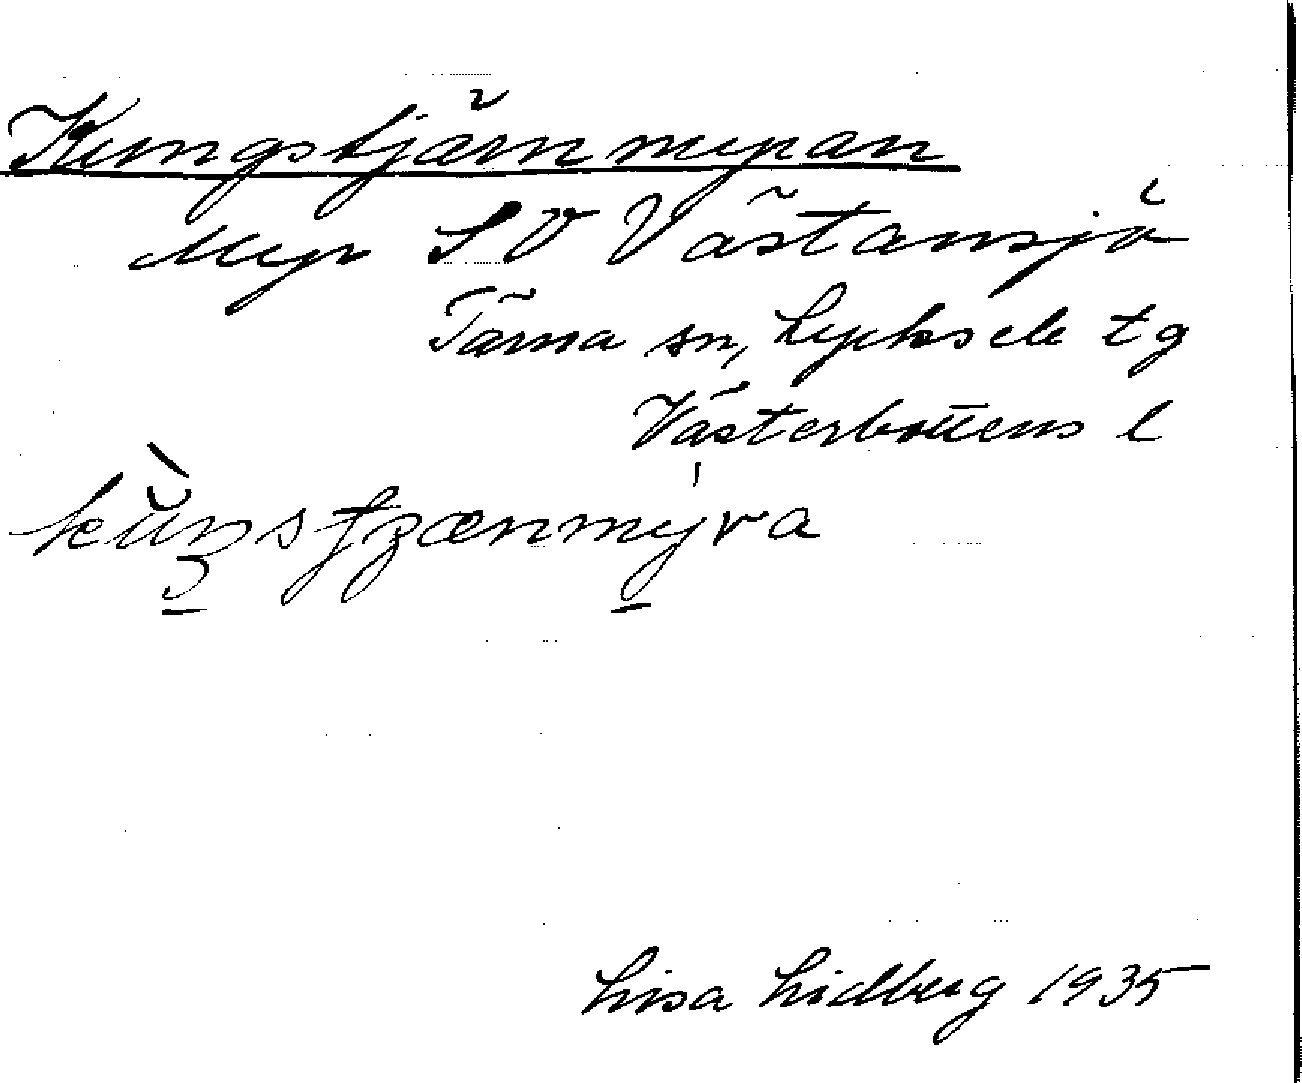 Kungstjärnmyran
Myr SV Västansjö
Tärna sn, Lycksele tg
Västerbottens l
Lisa Lidberg 1935